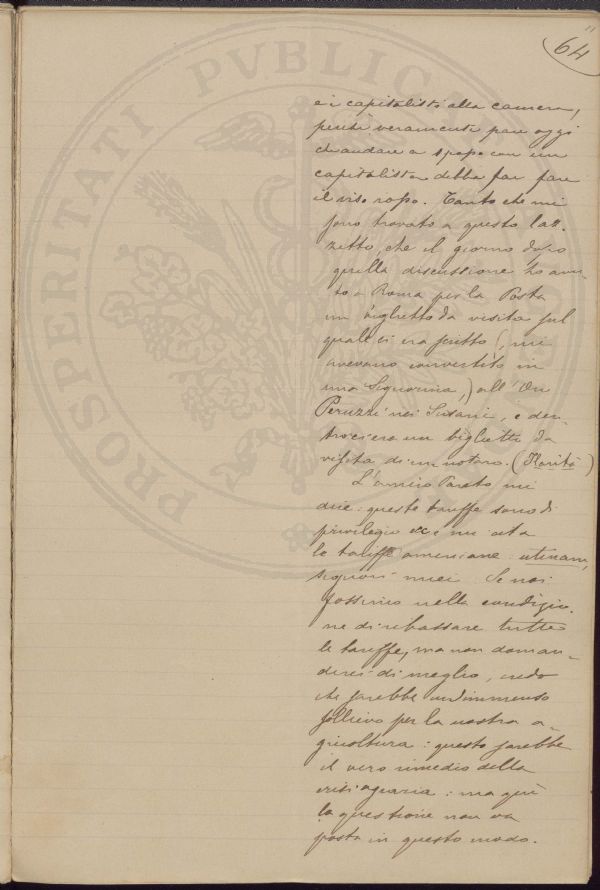 64
e i capitalisti alla camera,
perciò veramente pare oggi
che andare a spasso con un
capitalista debba far fare
il viso rosso. Tanto che mi
sono trovato a questo laz-
zetto, che il giorno dopo
quella discussione ho avu-
to a Roma per la Posta
un biglietto da visita sul
quale ci era scritto (, mi
avevano convertito in
una Signorina,) all'On
Peruzzi nei e den-
tro ci era un biglietto da
visita di un notaro. (Ilarità)
L'amico Pareto mi
dice: queste tariffe sono di
privilegio ecc e mi cita
le tariffe americane: utinam,
signori miei Se noi
fossimo nella condizio-
ne di ribassare tutte
le tariffe, ma non doman-
derei di meglio, credo
che sarebbe un immenso
sollievo per la nostra a-
gricoltura: questo sarebbe
il vero rimedio della
crisi agraria: ma qui
la questione non va
posta in questo modo.
PROSPERITATI PVBLICAE